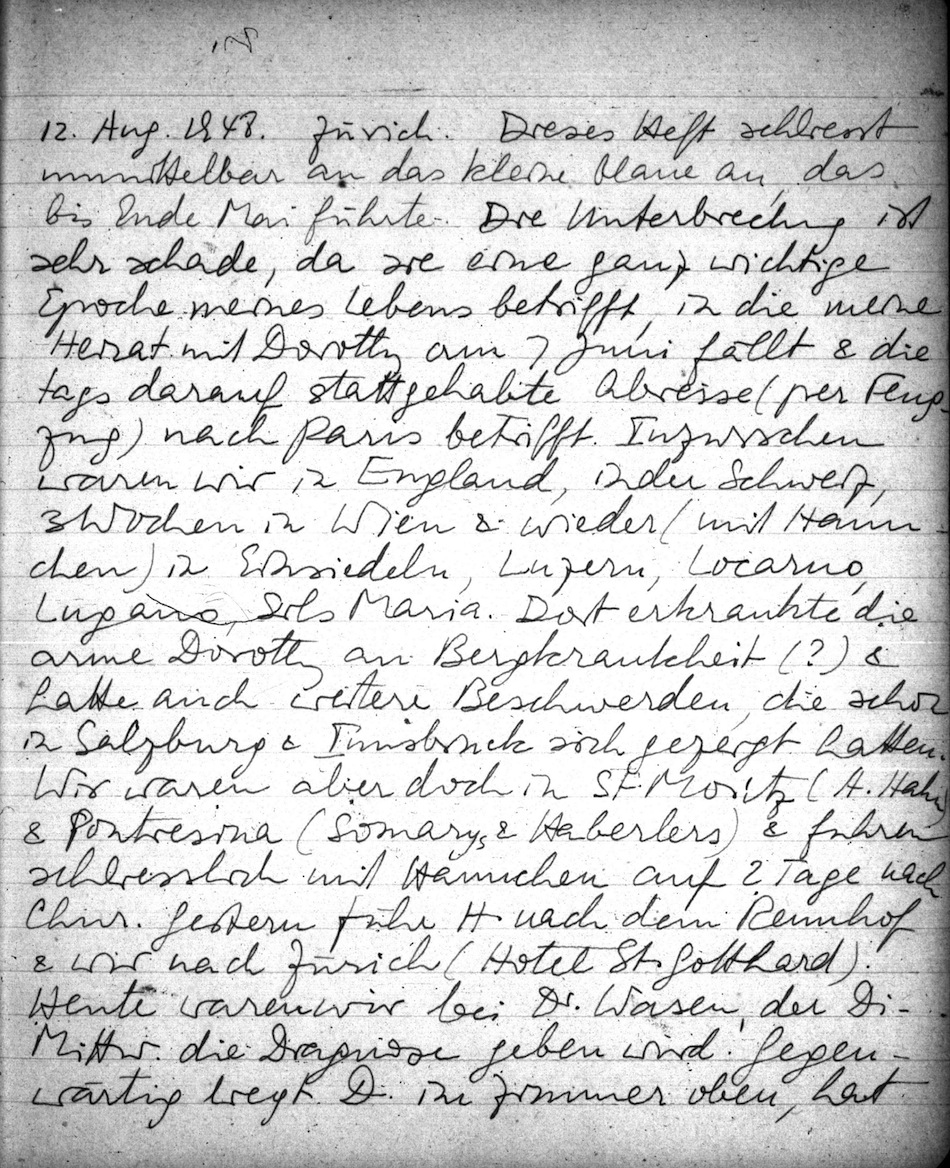 12. Aug. 1948. Zürich. Dieses Heft schliesst
unmittelbar an das kleine blaue an, das
bis Ende Mai führte. Die Unterbrechung ist
sehr schade, da sie eine ganz wichtige
Epoche meines Lebens betrifft, in die meine
Heirat mit Dorothy am 7 Juni fällt & die
tags darauf stattgehabte Abreise (per Flug
zeug) nach Paris betrifft. Inzwischen
waren wir in England, in der Schweiz,
3 Wochen in Wien & wieder (mit Hann-
chen) in Einsiedeln, Luzern, Locarno,
Lugano, Sils Maria. Dort erkrankte die
arme Dorothy an Bergkrankheit (?) &
hatte auch weitere Beschwerden, die schon
in Salzburg & Innsbruck sich gezeigt hatten.
Wir waren aber doch in St. Moritz (H. Hahn)
& Pontresina (Somarys & Haberlers) & fuhren
schliesslich mit Hannchen auf 2 Tage nach
Chur. Gestern fuhr H. nach dem Rennhof
& wir nach Zürich (Hotel St. Gotthard).
Heute waren wir bei Dr. Wasen, der Di-
Mittw. die Diagnose geben wird. Gegen-
wärtig liegt D. im Zimmer oben, hat